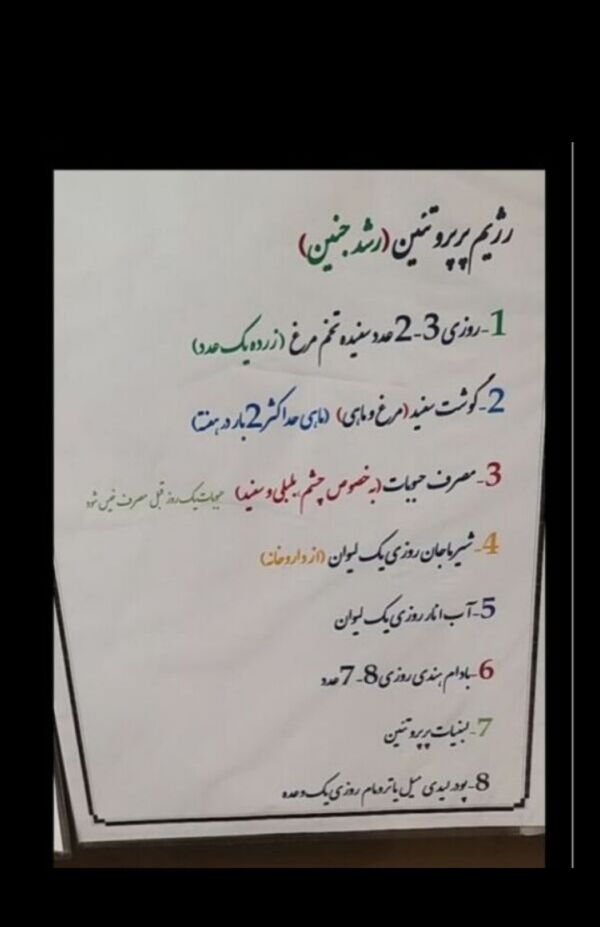 رژیم پرپروتئین (رشد جنین)
1-روزی 3-2 عدد سفیده تخم مرغ (از رده یک عدد)
2-گوشت سفید (مرغ و ماهی) (ماهی حداکثر 2 بار در هفته)
3-مصرف حبوبات (به خصوص چشم بلبلی و سفید) حبوبات یک روز قبل مصرف خیس شود
4-شیر ماجان روزی یک لیوان (از داروخانه)
5-آب انار روزی یک لیوان
6-بادام هندی روزی 8-7 عدد
7-لبنیات پرپروتئین
8-پودر لیدی میل یا ترومام روزی یک وعده